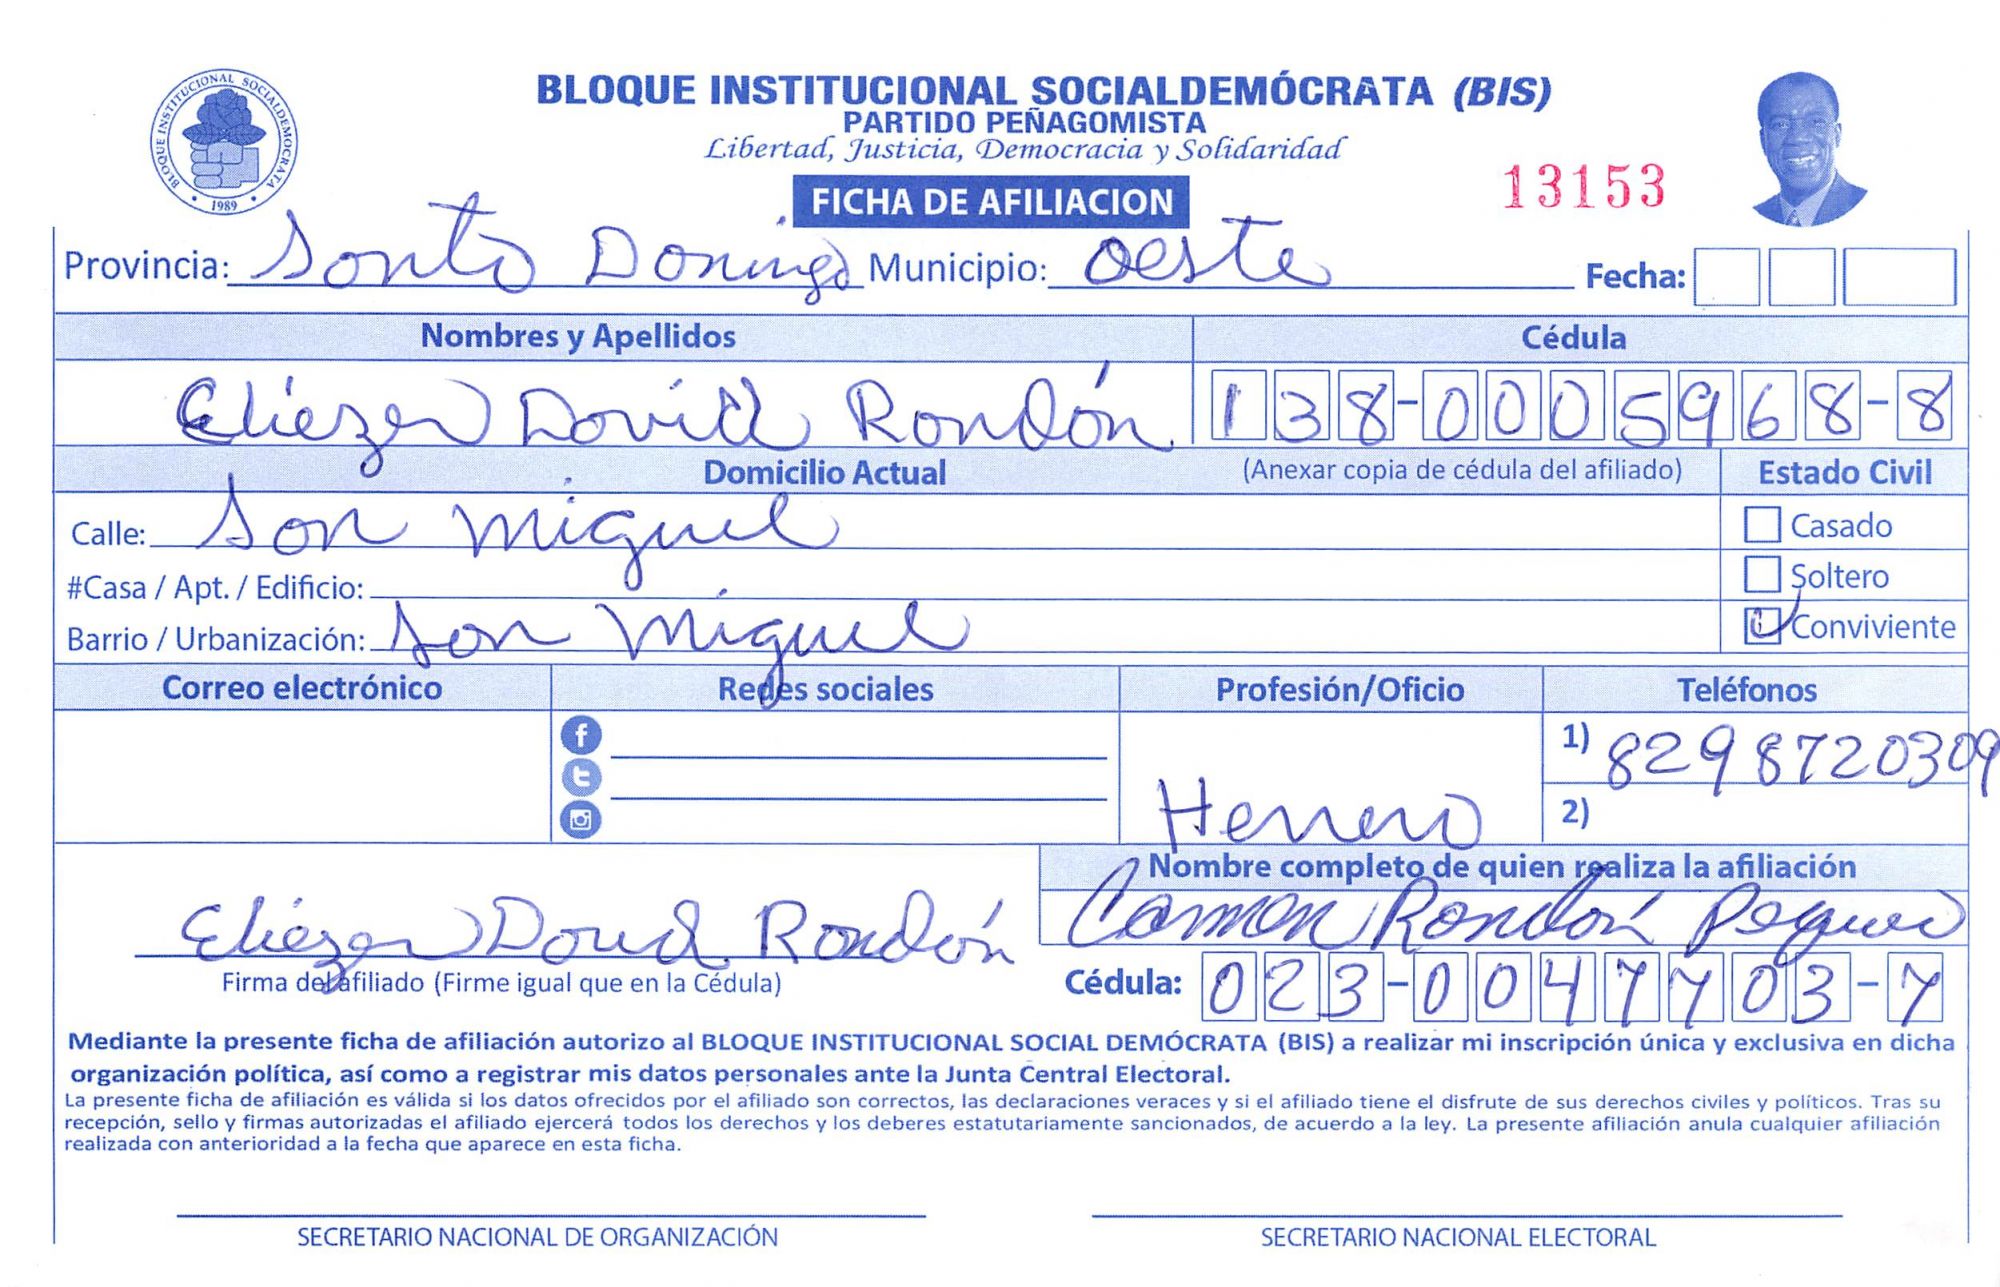 BLOQUE INSTITUCIONAL SOCIALDEMÓCRATA • 1989 •
BLOQUE INSTITUCIONAL SOCIALDEMÓCRATA (BIS)
PARTIDO PEÑAGOMISTA
Libertad, Justicia, Democracia y Solidaridad
FICHA DE AFILIACION
13153
Provincia: Santo Domingo Municipio: Oeste Fecha:
Nombres y Apellidos Cédula
Eliezer David Rondón 138-0005968-8
Domicilio Actual (Anexar copia de cédula del afiliado) Estado Civil
Calle: San Miguel Casado
#Casa / Apt. / Edificio: Soltero
Barrio / Urbanización: San Miguel Conviviente
Correo electrónico Redes sociales Profesión/Oficio Teléfonos
1) 8298720309
Herrero 2)
Nombre completo de quien realiza la afiliación
Eliezer David Rondón Carmen Rondón
Firma del afiliado (Firme igual que en la Cédula) Cédula: 023-0047703-7
Mediante la presente ficha de afiliación autorizo al BLOQUE INSTITUCIONAL SOCIAL DEMÓCRATA (BIS) a realizar mi inscripción única y exclusiva en dicha
organización política, así como a registrar mis datos personales ante la Junta Central Electoral.
La presente ficha de afiliación es válida si los datos ofrecidos por el afiliado son correctos, las declaraciones veraces y si el afiliado tiene el disfrute de sus derechos civiles y políticos. Tras su
recepción, sello y firmas autorizadas el afiliado ejercerá todos los derechos y los deberes estatutariamente sancionados, de acuerdo a la ley. La presente afiliación anula cualquier afiliación
realizada con anterioridad a la fecha que aparece en esta ficha.
SECRETARIO NACIONAL DE ORGANIZACIÓN SECRETARIO NACIONAL ELECTORAL